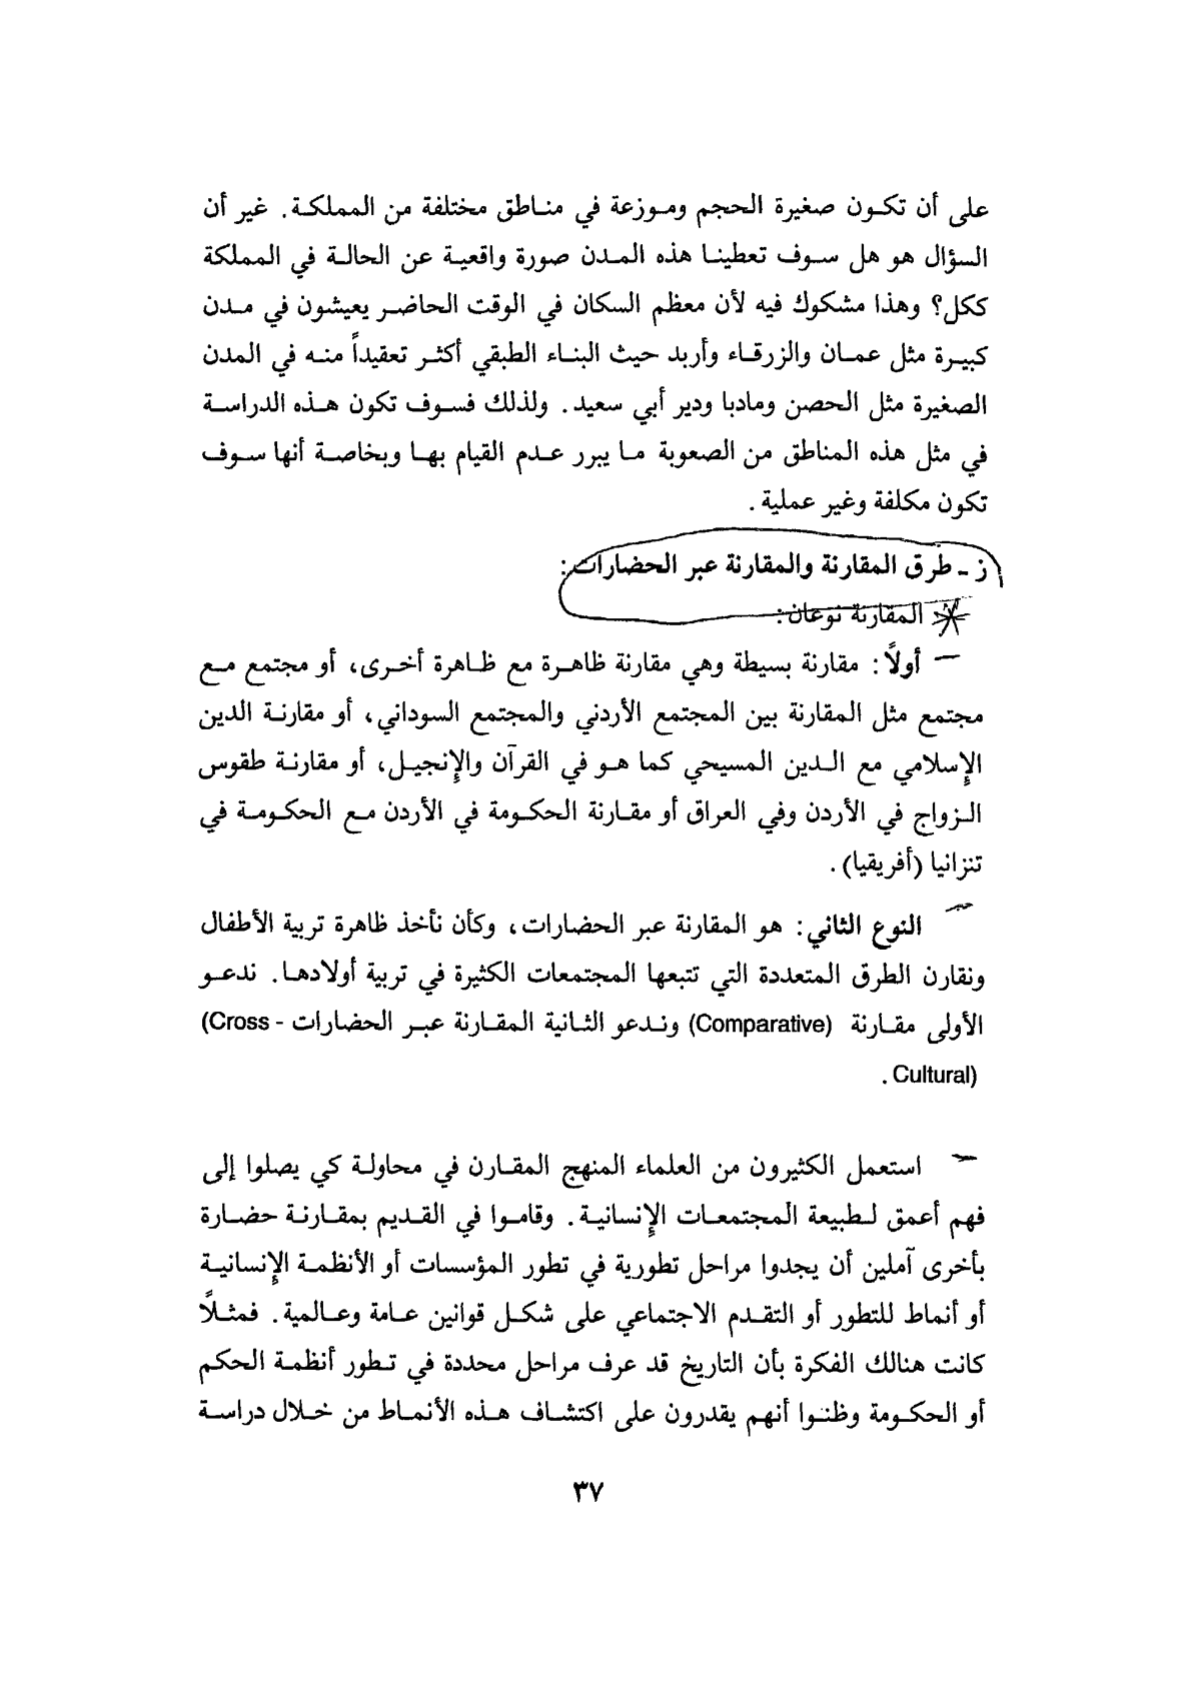 على أن تكون صغيرة الحجم وموزعة في مناطق مختلفة من المملكة. غير أن
السؤال هو هل سوف تعطينا هذه المدن صورة واقعية عن الحالة في المملكة
ككل؟ وهذا مشكوك فيه لأن معظم السكان في الوقت الحاضر يعيشون في مدن
كبيرة مثل عمان والزرقاء وأربد حيث البناء الطبقي أكثر تعقيداً منه في المدن
الصغيرة مثل الحصن ومادبا ودير أبي سعيد. ولذلك فسوف تكون هذه الدراسة
في مثل هذه المناطق من الصعوبة ما يبرر عدم القيام بها وبخاصة أنها سوف
تكون مكلفة وغير عملية.
ز - طرق المقارنة والمقارنة عبر الحضارات:
المقارنة نوعان:
أولاً: مقارنة بسيطة وهي مقارنة ظاهرة مع ظاهرة أخرى، أو مجتمع مع
مجتمع مثل المقارنة بين المجتمع الأردني والمجتمع السوداني، أو مقارنة الدين
الإسلامي مع الدين المسيحي كما هو في القرآن والإنجيل، أو مقارنة طقوس
الزواج في الأردن وفي العراق أو مقارنة الحكومة في الأردن مع الحكومة في
تنزانيا (أفريقيا).
النوع الثاني: هو المقارنة عبر الحضارات، وكأن نأخذ ظاهرة تربية الأطفال
ونقارن الطرق المتعددة التي تتبعها المجتمعات الكثيرة في تربية أولادها. ندعو
الأولى مقارنة (Comparative) وندعو الثانية المقارنة عبر الحضارات (Cross -
Cultural).
استعمل الكثيرون من العلماء المنهج المقارن في محاولة كي يصلوا إلى
فهم أعمق لطبيعة المجتمعات الإنسانية. وقاموا في القديم بمقارنة حضارة
بأخرى آملين أن يجدوا مراحل تطورية في تطور المؤسسات أو الأنظمة الإنسانية
أو أنماط للتطور أو التقدم الاجتماعي على شكل قوانين عامة وعالمية. فمثلاً
كانت هنالك الفكرة بأن التاريخ قد عرف مراحل محددة في تطور أنظمة الحكم
أو الحكومة وظنوا أنهم يقدرون على اكتشاف هذه الأنماط من خلال دراسة
٣٧